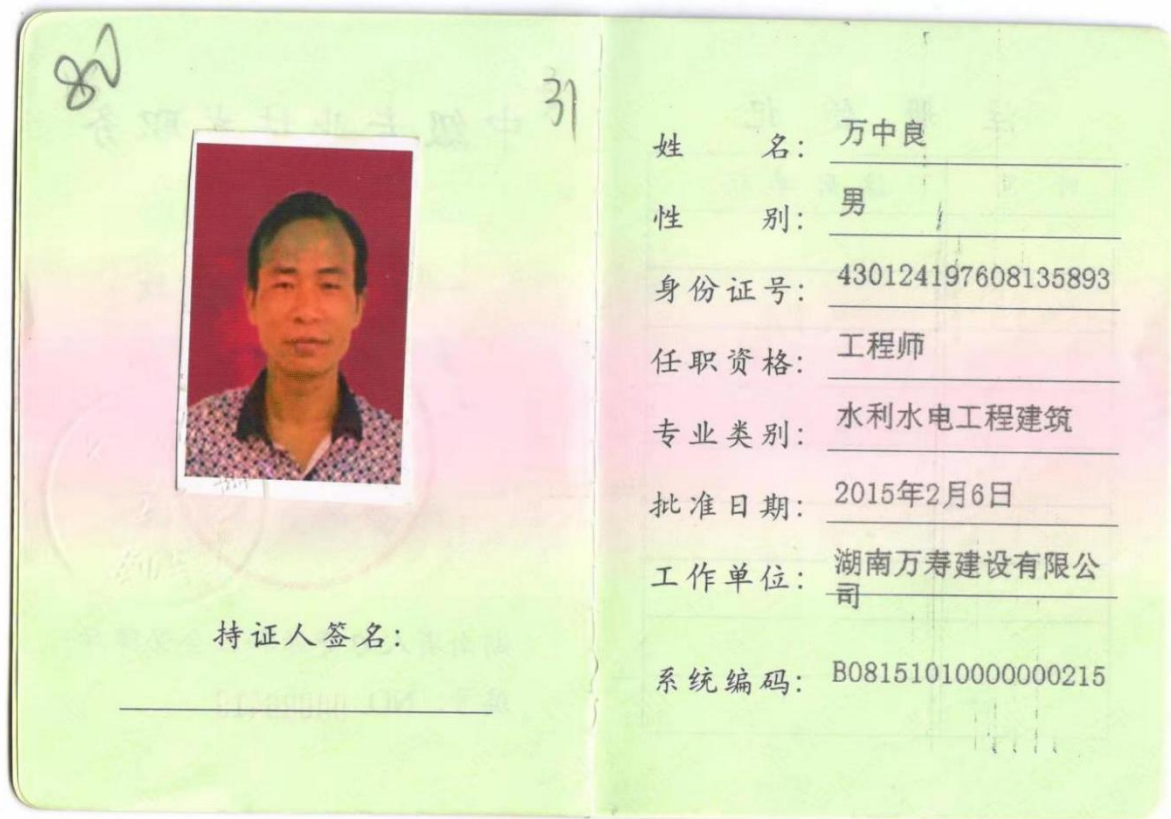 31
持证人签名:
姓 名: 万中良
性 别: 男
身份证号: 430124197608135893
任职资格: 工程师
专业类别: 水利水电工程建筑
批准日期: 2015年2月6日
工作单位: 湖南万寿建设有限公
司
系统编码: B08151010000000215